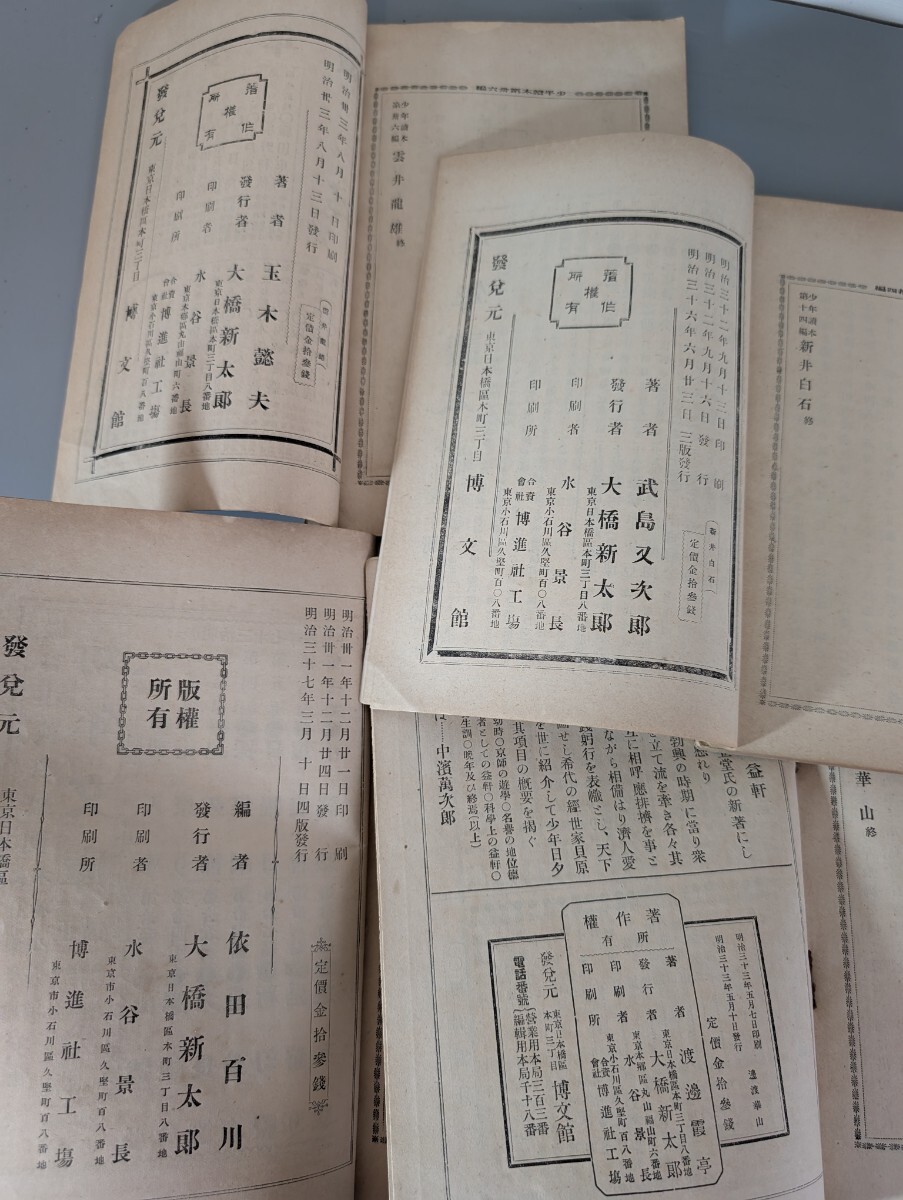 明治卅三年八月十日印刷
明治卅三年八月十三日發行
定價金拾叁錢
著作權所有
著者 玉木懿夫
發行者 大橋新太郎
東京日本橋區本町三丁目八番地
印刷者 水谷景長
東京本鄉區丸山福山町六番地
印刷所 合資會社 博進社工場
東京小石川區久堅町百八番地
發兌元 東京日本橋區本町三丁目 博文館
少年讀本第卅六編
少年讀本
第卅六編 雲井龍雄 終
明治三十二年九月十三日印刷
明治三十二年九月十六日發行
明治三十六年六月廿三日三版發行
新井白石
定價金拾叁錢
著作權所有
著者 武島又次郎
發行者 大橋新太郎
東京日本橋區本町三丁目八番地
印刷者 水谷景長
東京小石川區久堅町百〇八番地
印刷所 合資會社 博進社工場
東京小石川區久堅町百〇八番地
發兌元 東京日本橋區本町三丁目 博文館
少年讀本
第十四編 新井白石 終
明治卅一年十二月廿一日印刷
明治卅一年十二月廿四日發行
明治三十七年三月十日四版發行
定價金拾參錢
版權所有
編者 依田百川
發行者 大橋新太郎
東京日本橋區本町三丁目八番地
印刷者 水谷景長
東京市小石川區久堅町百八番地
印刷所 博進社工場
東京市小石川區久堅町百八番地
發兌元 東京日本橋區
益軒
堂氏の新著にし
勃興の時期に當り衆
を立て流を牽き各々其
互に相呼應排擠を事と
ながら相備はり濟人愛
踐躬行を表幟とし、天下
せし希代の經世家貝原
を世に紹介して少年日夕
其項目の概要を揭ぐ
幼時〇京師の遊學〇名譽の地位德
者としての益軒〇科學上の益軒〇
生訓〇晩年及び終焉(以上)
は……中濱萬次郎
明治三十三年五月七日印刷
明治三十三年五月十日發行
渡邊華山
定價金拾叁錢
著作權所有
著者 渡邊霞亭
發行者 大橋新太郎
東京日本橋區本町三丁目八番地
印刷者 水谷景長
東京本鄉區丸山福山町六番地
印刷所 合資會社 博進社工場
東京小石川區久堅町百八番地
發兌元 東京日本橋區本町三丁目 博文館
電話番號 營業用本局三百三番
編輯用本局千十八番
華山 終